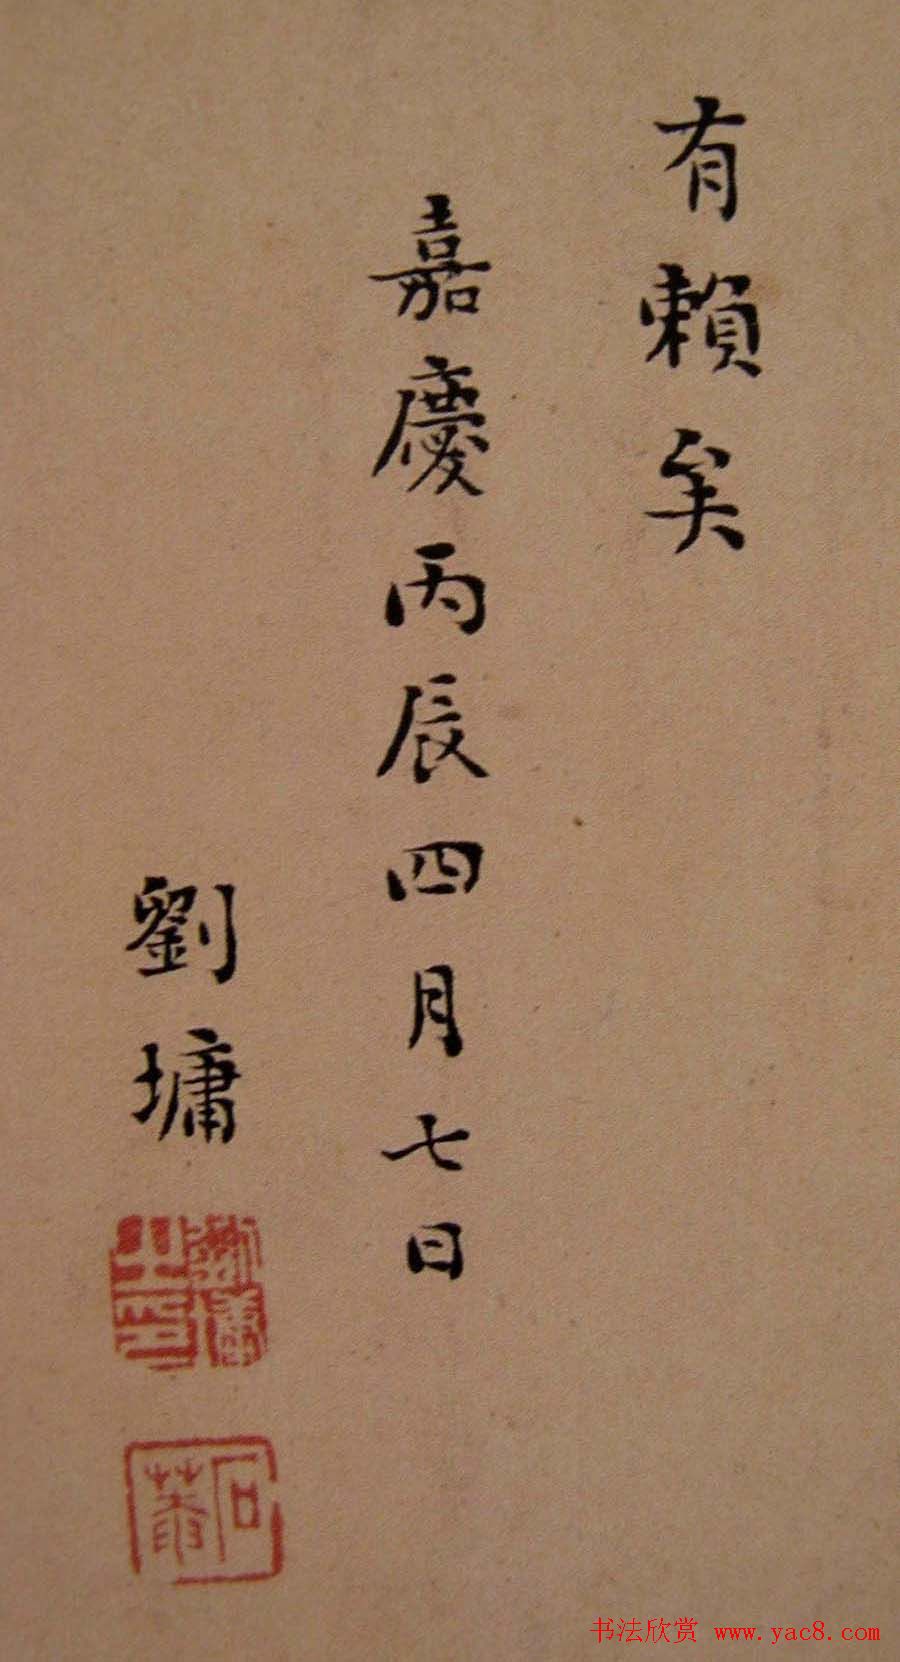 有賴矣
嘉慶丙辰四月七日
劉墉
劉墉之印
石菴
书法欣赏 www.yac8.com